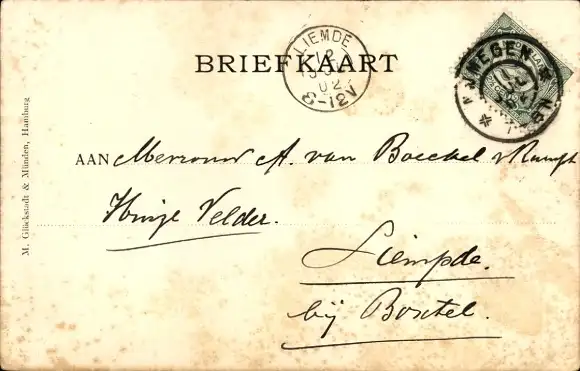 BRIEFKAART
LIEMDE
12
02
8-12V
NIJMEGEN
AAN Mevrouw A. van Boeckel v Rumpt
Huize Velder.
Liempde.
bij Boxtel.
M. Glückstadt & Münden, Hamburg